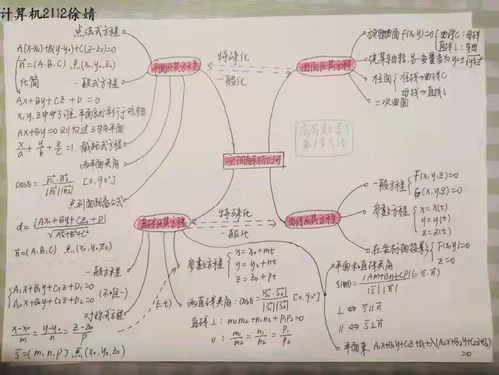 计算机2112徐婧
点法式方程
A(x-x₀)+B(y-y₀)+C(z-z₀)=0
n⃗=(A.B.C) 点(x₀,y₀,z₀)
化简
一般式方程
Ax+By+Cz+D=0
Ax+By=0
x/a+y/b+z/c=1 截距式方程
两平面夹角
cosθ=|n₁·n₂|/|n₁||n₂| [0,90°]
点到面距离公式
d=|Ax₀+By₀+Cz₀+D|/√A²+B²+C²
n⃗=(A.B.C) 点(x₀,y₀,z₀)
平面及其方程
特殊化
一般化
曲面及其方程
旋转曲面
柱面
二次曲面
空间解析几何
直线及其方程
特殊化
一般化
曲线及其方程
一般方程 F(x,y,z)=0
G(x,y,z)=0
参数方程 x=x(t)
y=y(t)
z=z(t)
一般方程
A₁x+B₁y+C₁z+D₁=0
A₂x+B₂y+C₂z+D₂=0
(不唯一)
对称式方程
x-x₀/m=y-y₀/n=z-z₀/p
s⃗=(m,n,p) 点(x₀,y₀,z₀)
参数方程 x=x₀+mt
y=y₀+nt
z=z₀+pt
两直线夹角:cosθ=|s₁·s₂|/|s₁||s₂| [0,90°]
直线⊥:m₁m₂+n₁n₂+p₁p₂=0
∥:m₁/m₂=n₁/n₂=p₁/p₂
平面和直线夹角
sinθ=|Am+Bn+Cp|/|s||n|
⊥ ⇔ s⃗∥n⃗
∥ ⇔ s⃗⊥n⃗
平面束 A₁x+B₁y+C₁z+D₁+λ(A₂x+B₂y+C₂z+D₂)
=0